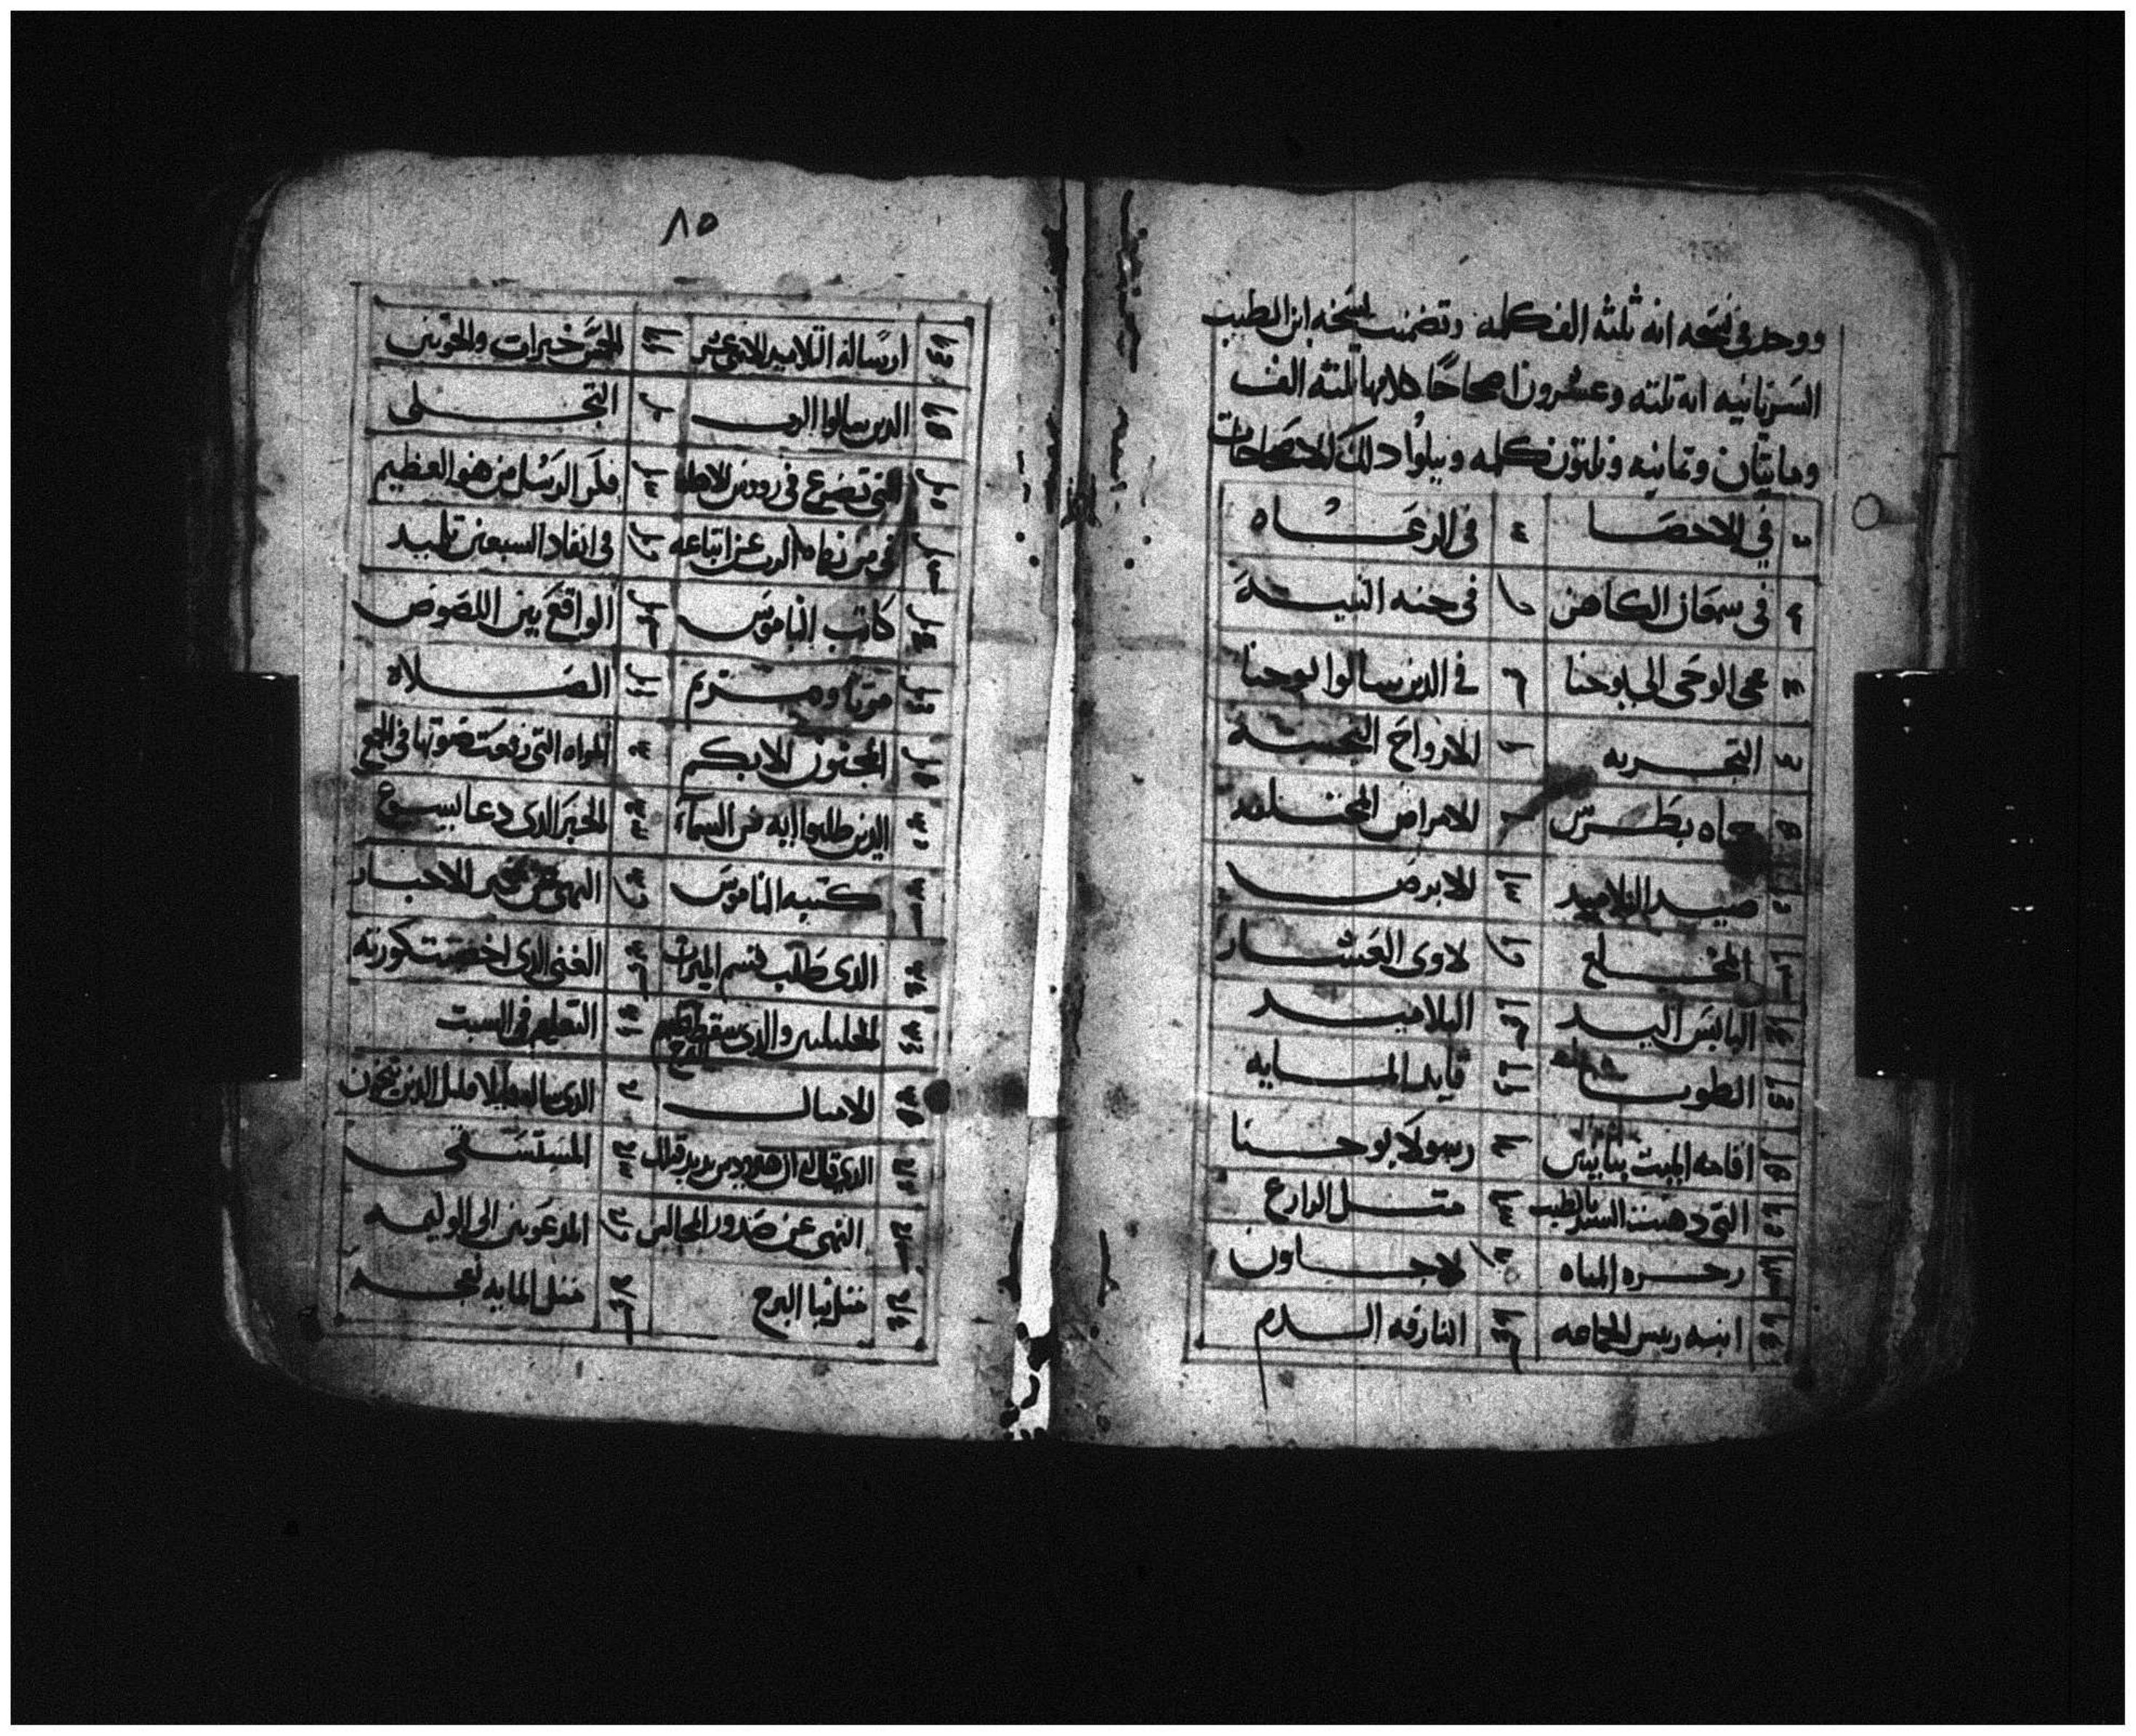 ووجد في نسخه انه ثلثة الف كلمه وتضمنت نسخه ابن الطيب
السريانيه انه ثلثه وعشرون اصحاحًا كلامها ثلثه الف
ومايتان وثمانيه وثلثون كلمه ويتلوا ذلك الاصحاحات
في الاحصا في الرعاه
في سمعان الكاهن في حنه النبيه
في الوحي الى يوحنا في الدين سالوا يوحنا
التجربه الارواح النجسه
حماه بطرس الامراض المختلفه
صيد التلاميد الابرص
المخلع لاوى العشار
اليابس اليد التلاميد
الطوبا قايد المايه
اقامه الميت بنايين رسولا يوحنا
التى دهنت السيد بالطيب مثل الزارع
زجره المياه لاجاون
ابنه ريس الجماعه النازفه الدم
٨٥
ارساله التلاميد الاثنى عشر الخمس خبزات والحوتين
الدين سالوا الرب التجلى
التى تضرع فى رووس الاهله فكر الرسل من هو العظيم
فى انفاد السبعين تلميد
كاتب الناموس الواقع بين اللصوص
مرتا ومريم الصلاه
المجنون الابكم المراه التى رفعت صوتها فى الجمع
الدين طلبوا ايه من السماء الحبر الدى دعا ليسوع
كتبه الناموس النهى عن خمير الاحبار
الدى طلب قسم الميراث الغنى الدى اخصبت كورته
الجليليين والدى سقط عليهم البرج التعليم فى السبت
الامثال الدى ساله قايلا قليل الدين ينجون
الدى قال له ان هيرودس يريد قتلك المستسقى
النهى عن صدور المجالس المدعوين الى الوليمه
مثل بنا البرج مثل المايه نعجه